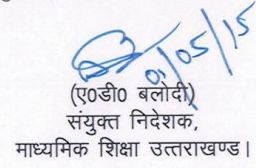 01/05/15
(ए0डी0 बलोदी)
संयुक्त निदेशक,
माध्यमिक शिक्षा उत्तराखण्ड।